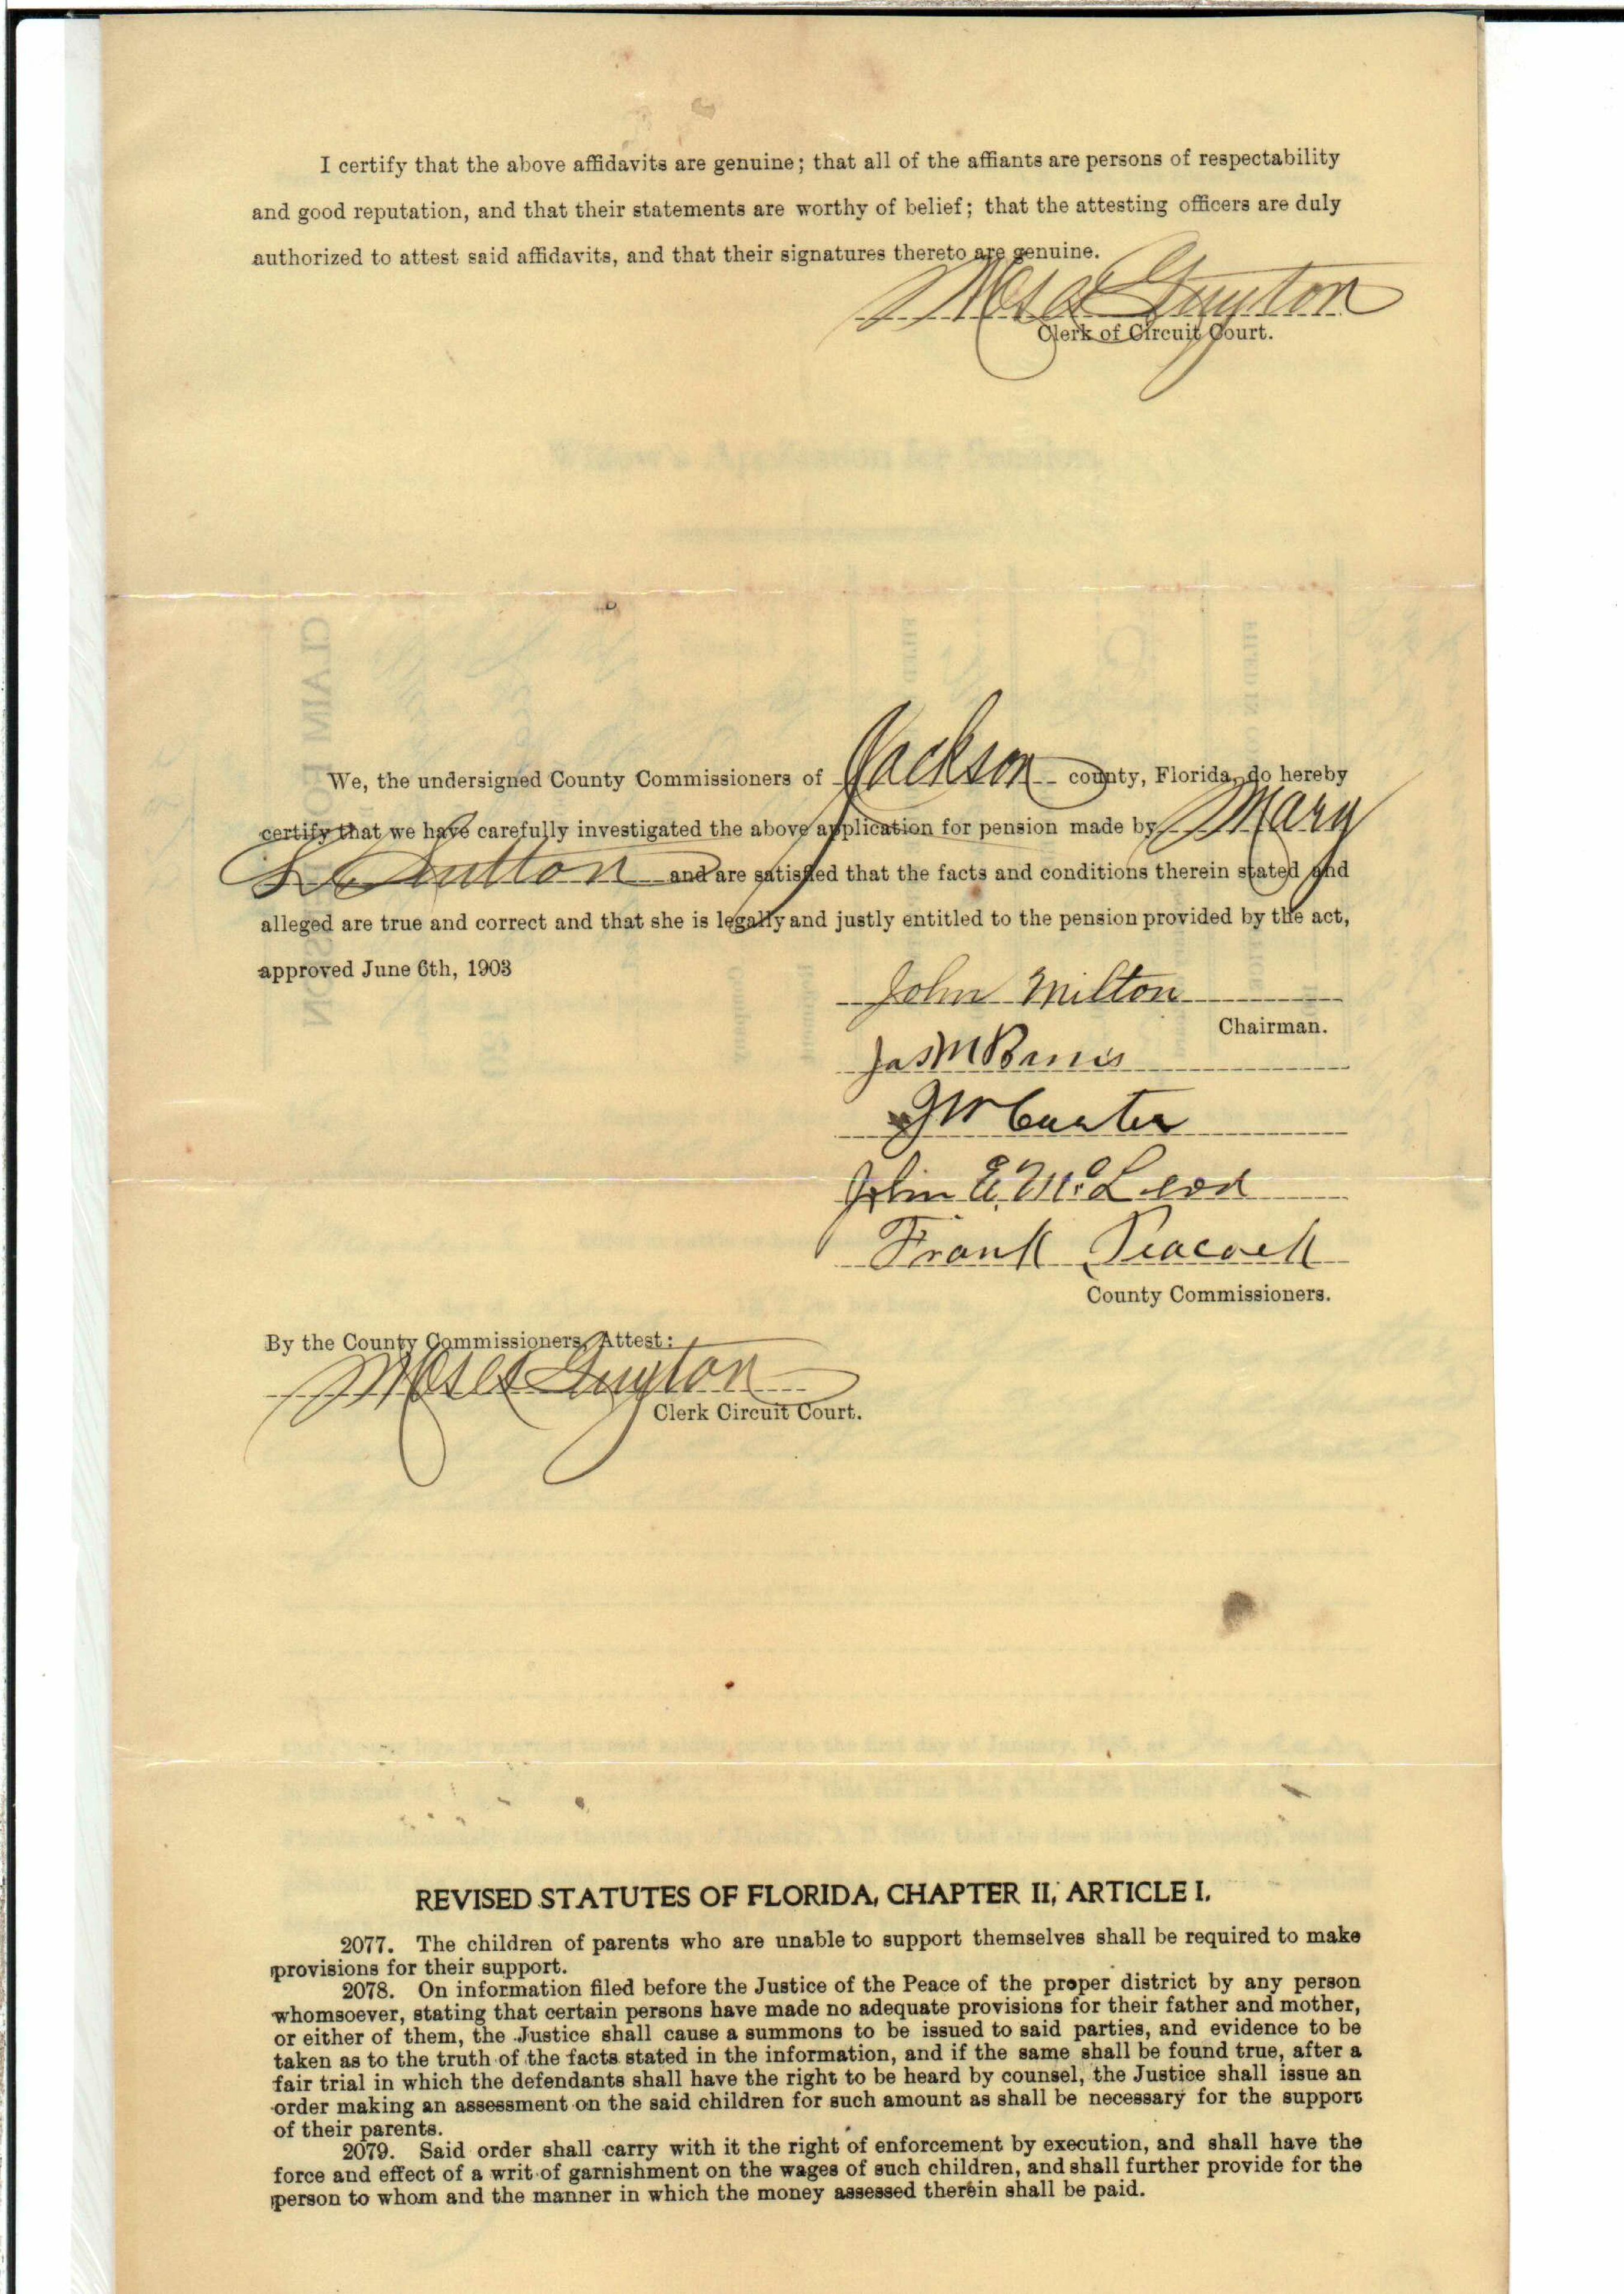 I certify that the above affidavits are genuine; that all of the affiants are persons of respectability
and good reputation, and that their statements are worthy of belief; that the attesting officers are duly
authorized to attest said affidavits, and that their signatures thereto are genuine.
Moses Guyton
Clerk of Circuit Court.
We, the undersigned County Commissioners of Jackson county, Florida, do hereby
certify that we have carefully investigated the above application for pension made by Mary
Sutton and are satisfied that the facts and conditions therein stated and
alleged are true and correct and that she is legally and justly entitled to the pension provided by the act,
approved June 6th, 1903
John Milton
Chairman.
Jas M
Carter
John E. McLeod
Frank Peacock
County Commissioners.
By the County Commissioners, Attest:
Moses Guyton
Clerk Circuit Court.
REVISED STATUTES OF FLORIDA, CHAPTER II, ARTICLE I.
2077. The children of parents who are unable to support themselves shall be required to make
provisions for their support.
2078. On information filed before the Justice of the Peace of the proper district by any person
whomsoever, stating that certain persons have made no adequate provisions for their father and mother,
or either of them, the Justice shall cause a summons to be issued to said parties, and evidence to be
taken as to the truth of the facts stated in the information, and if the same shall be found true, after a
fair trial in which the defendants shall have the right to be heard by counsel, the Justice shall issue an
order making an assessment on the said children for such amount as shall be necessary for the support
of their parents.
2079. Said order shall carry with it the right of enforcement by execution, and shall have the
force and effect of a writ of garnishment on the wages of such children, and shall further provide for the
person to whom and the manner in which the money assessed therein shall be paid.